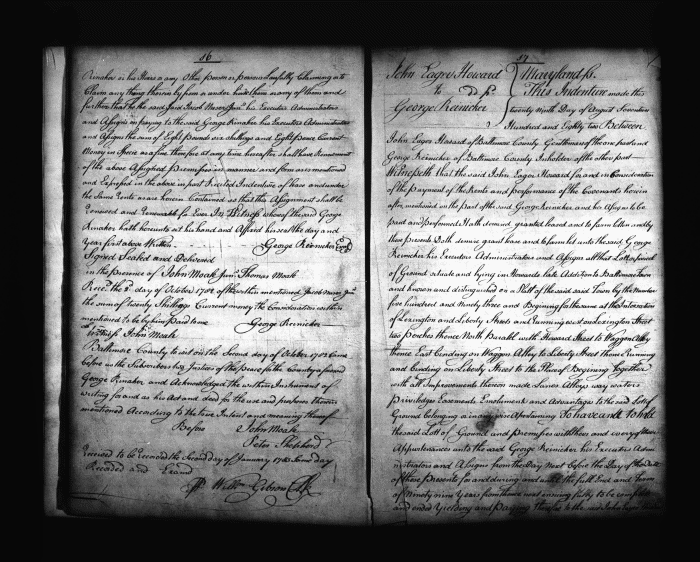 16
Reimaker or his Heirs or any Other person or persons Lawfully Claiming or to
Claim any thing therein by from or under both them or any of them and
further that the said Jacob Myers Jun.r his Executors Administrators
and Assigns on paying to the said George Rimaker his Executors Administrators
and Assigns the sum of Eight Pounds six shillings and Eight Pence Current
Money in Specie as a fine therefor at any time hereafter shall have Renewment
of the above Assigned Premises in manner and form as mentioned
and Expressed in the above in part Recited Indenture of lease and under
the Same Rents as are herein Contained so that this Assignment shall be
Renewed and Renewable for Ever In Witness whereof the said George
Rimaker hath hereunto set his hand and Affixed his seal the day and
Year first above Written. George Reinecker Seal
Signed Sealed and Delivered
in the presence of John Moale Jun.r Thomas Moale
Rec.d the day of October 1782 of the within mentioned Jacob Myers Jun.r
the sum of twenty Shillings Current money the Consideration within
mentioned to be by him paid to me George Reinecker
Witness John Moale
Baltimore County to wit on the Second day of October 1782 Came
before us the Subscribers two Justices of the Peace for the County aforesaid
George Rimaker and Acknowledged the within Instrument of
writing for and as his Act and deed for the use and purposes therein
mentioned According to the true Intent and meaning thereof
Before John Moale
Peter Shepherd
Received to be Recorded the Second day of January 1783 Same day
Recorded and Exam.d
P.r Will.m Gibson Clk
17
John Eager Howard
to D.s
George Reinecker
Maryland ss.
This Indenture made this
twenty Ninth Day of August Seventeen
Hundred and Eighty two Between
John Eager Howard of Baltimore County Gentleman of the one part and
George Reinecker of Baltimore County Inholder of the other part
Witnesseth that the said John Eager Howard for and in Consideration
of the payment of the Rents and performance of the Covenants herein
after mentioned on the part of the said George Reinecker and his Assigns to be
paid and performed Hath demised granted leased and to farm letten and by
these presents Doth demise grant lease and to farm let unto the said George
Reinecker his Executors Administrators and Assigns all that Lott or parcel
of Ground situate and lying in Howards late Addition to Baltimore town
and known and distinguished on a Plat of the said Town by the Number
five hundred and Ninety three and Beginning for the same at the Intersection
of Lexington and Liberty Streets and running west on Lexington Street
two perches thence North Paralel with Howard Street to Waggon Alley
thence East binding on Waggon Alley to Liberty Street thence Running
and binding on Liberty Street to the Place of Begining Together
with all Improvements thereon made Lanes Alleys ways waters
priviledges Easements Emoluments and Advantages to the said Lott of
Ground belonging or in any wise Apertaining To have and to hold
the said Lott of Ground and premises with there and every of their
Appurtenances unto the said George Reinecker his Executors Admi
nistrators and Assigns from the Day Next before the Day of the Date
of these Presents for and during and untill the full End and Term
of Ninety nine Years from thence next ensuing fully to be compleat
and ended Yielding and Paying therefor to the said John Eager